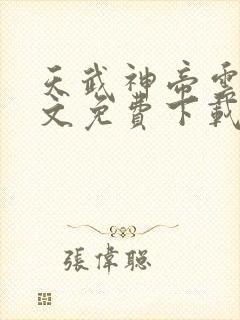 天武神帝雲
文免費下載
張偉聰